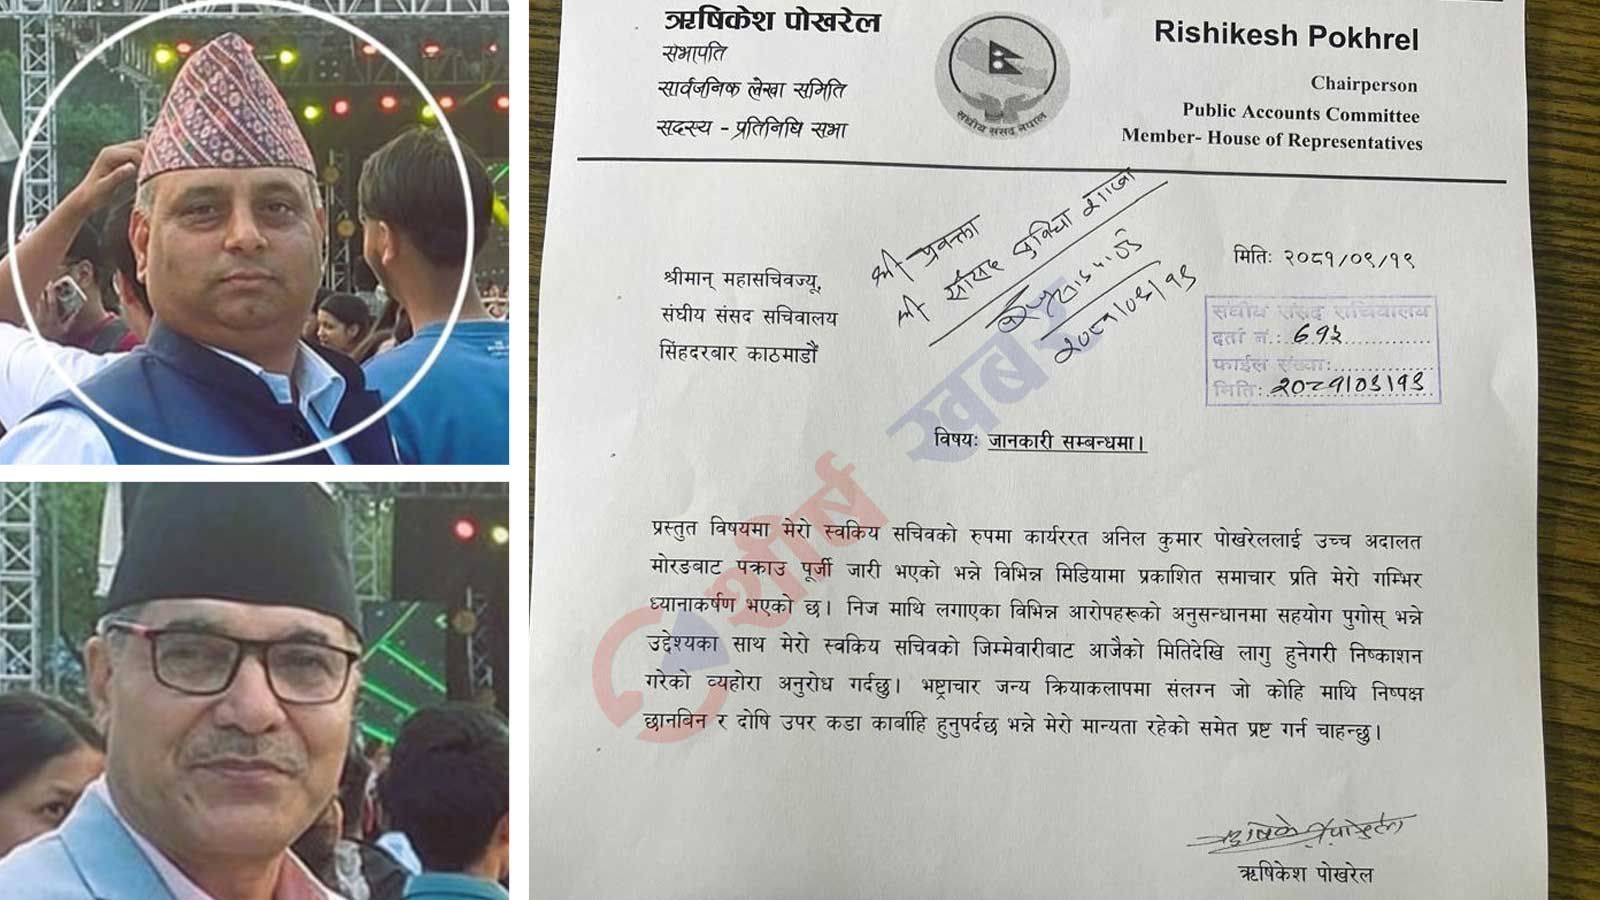 ऋषिकेश पोखरेल
सभापति
सार्वजनिक लेखा समिति
सदस्य - प्रतिनिधि सभा
संघीय संसद नेपाल
Rishikesh Pokhrel
Chairperson
Public Accounts Committee
Member- House of Representatives
श्री प्रवक्ता
श्री सांसद सुविधा शाखा
मितिः २०८१/०९/१९
श्रीमान् महासचिवज्यू,
संघीय संसद सचिवालय
सिंहदरबार काठमाडौं
संघीय संसद सचिवालय
दर्ता नं.:
फाईल संख्या:
मिति:
विषयः जानकारी सम्बन्धमा।
प्रस्तुत विषयमा मेरो स्वकिय सचिवको रुपमा कार्यररत अनिल कुमार पोखरेललाई उच्च अदालत
मोरङबाट पक्राउ पूर्जी जारी भएको भन्ने विभिन्न मिडियामा प्रकाशित समाचार प्रति मेरो गम्भिर
ध्यानाकर्षण भएको छ। निज माथि लगाएका विभिन्न आरोपहरूको अनुसन्धानमा सहयोग पुगोस् भन्ने
उद्देश्यका साथ मेरो स्वकिय सचिवको जिम्मेवारीबाट आजैको मितिदेखि लागु हुनेगरी निष्काशन
गरेको व्यहोरा अनुरोध गर्दछु। भष्ट्राचार जन्य क्रियाकलापमा संलग्न जो कोहि माथि निष्पक्ष
छानबिन र दोषि उपर कडा कार्वाहि हुनुपर्दछ भन्ने मेरो मान्यता रहेको समेत प्रष्ट गर्न चाहन्छु।
शीर्ष खबर
ऋषिकेश पोखरेल
ऋषिकेश पोखरेल